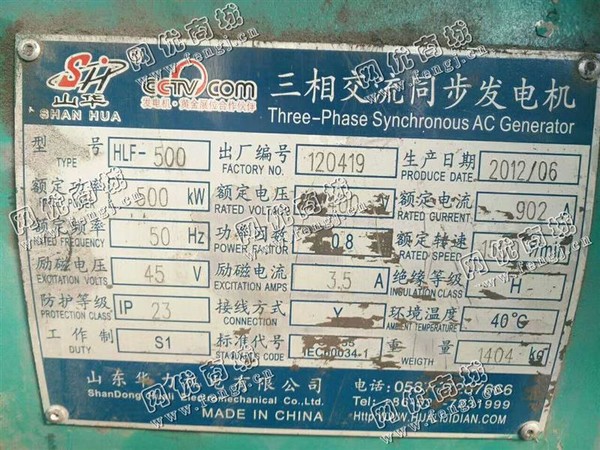 SH 山华 SHAN HUA
CCTV.COM
发电机·黄金展位合作伙伴
三相交流同步发电机
Three-Phase Synchronous AC Generator
型号 TYPE HLF-500 出厂编号 FACTORY NO. 120419 生产日期 PRODUCE DATE 2012/06
额定功率 500 kW 额定电压 RATED V 额定电流 RATED GURRENT 902 A
额定频率 RATED FREQUENCY 50 Hz 功率因数 POWER FACTOR 0.8 额定转速 RATED SPEED
励磁电压 EXCITATION VOLTS 45 V 励磁电流 EXCITATION AMPS 3.5 A 绝缘等级 INSULATION CLASS H
防护等级 PROTECTION CLASS IP 23 接线方式 CONNECTION Y 环境温度 AMBIENT TEMPERATURE 40℃
工作制 DUTY S1 标准代号 CODE IEC60034-1 重量 WEIGTH 1404 kg
山东华力 有限公司 电话:
ShanDong Electromechanical Co.,Ltd. Tel:
MADE IN CHINA
网优商城
www.fengj.com